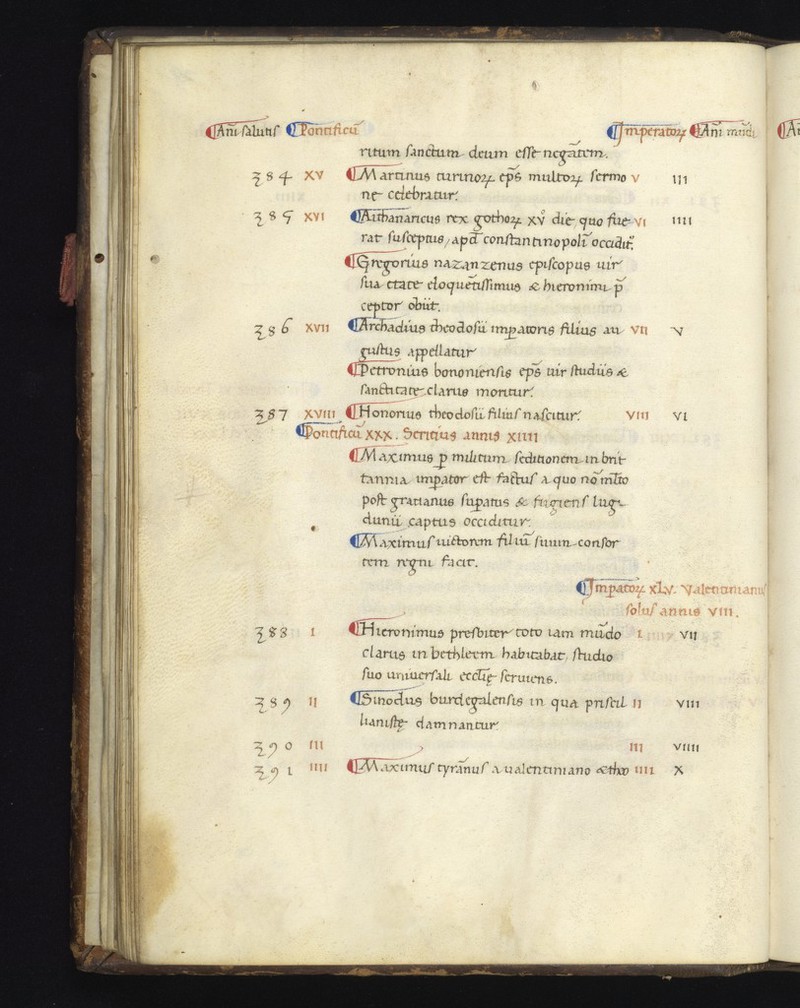 ¶Añi salutis ¶Pontificũ ¶Imperatoꝝ ¶Añi mũdi
ritum sanctum deum esse negãtem.
384 XV ¶Martinus turinoꝝ ep̃s multoꝝ sermo V III
ne celebratur.
385 XVI ¶Aithanaricus rex gothoꝝ xv° die quo fue VI IIII
rat susceptus, apđ constantinopolĩ occidit̃.
¶Gregorius nazanzenus episcopus uir
sua etate eloquẽtissimus & hieronimi p̃
ceptor obiit.
386 XVII ¶Archadius theodosii imꝑatoris filius au VII V
gustus appellatur
¶Petronius bononiensis ep̃s uir studiis &
sanctitate clarus moritur.
387 XVIII ¶Honorius theodosii filius nascitur. VIII VI
¶Pontificũ XXX. Siricius annis XIIII
¶Maximus ꝑ militum seditionem in brit
tannia imꝑator est factus a quo nõ mĩto
post gratianus suꝑatus & fugiens lug
duniĩ captus occiditur.
¶Maximus uictorem filiũ suum consor
tem regni facit.
¶Imꝑatoꝝ XLV. Valentinianus
solus annis VIII.
388 I ¶Hieronimus presbiter toto iam mũdo I VII
clarus in bethleem habitabat, studio
suo uniuersali eccłię seruiens.
389 II ¶Sinodus burdegalensis in qua priscil II VIII
lianistę damnantur.
390 III III VIIII
391 IIII ¶Maximus tyrãnus a ualentiniano & theo IIII X
¶Añ